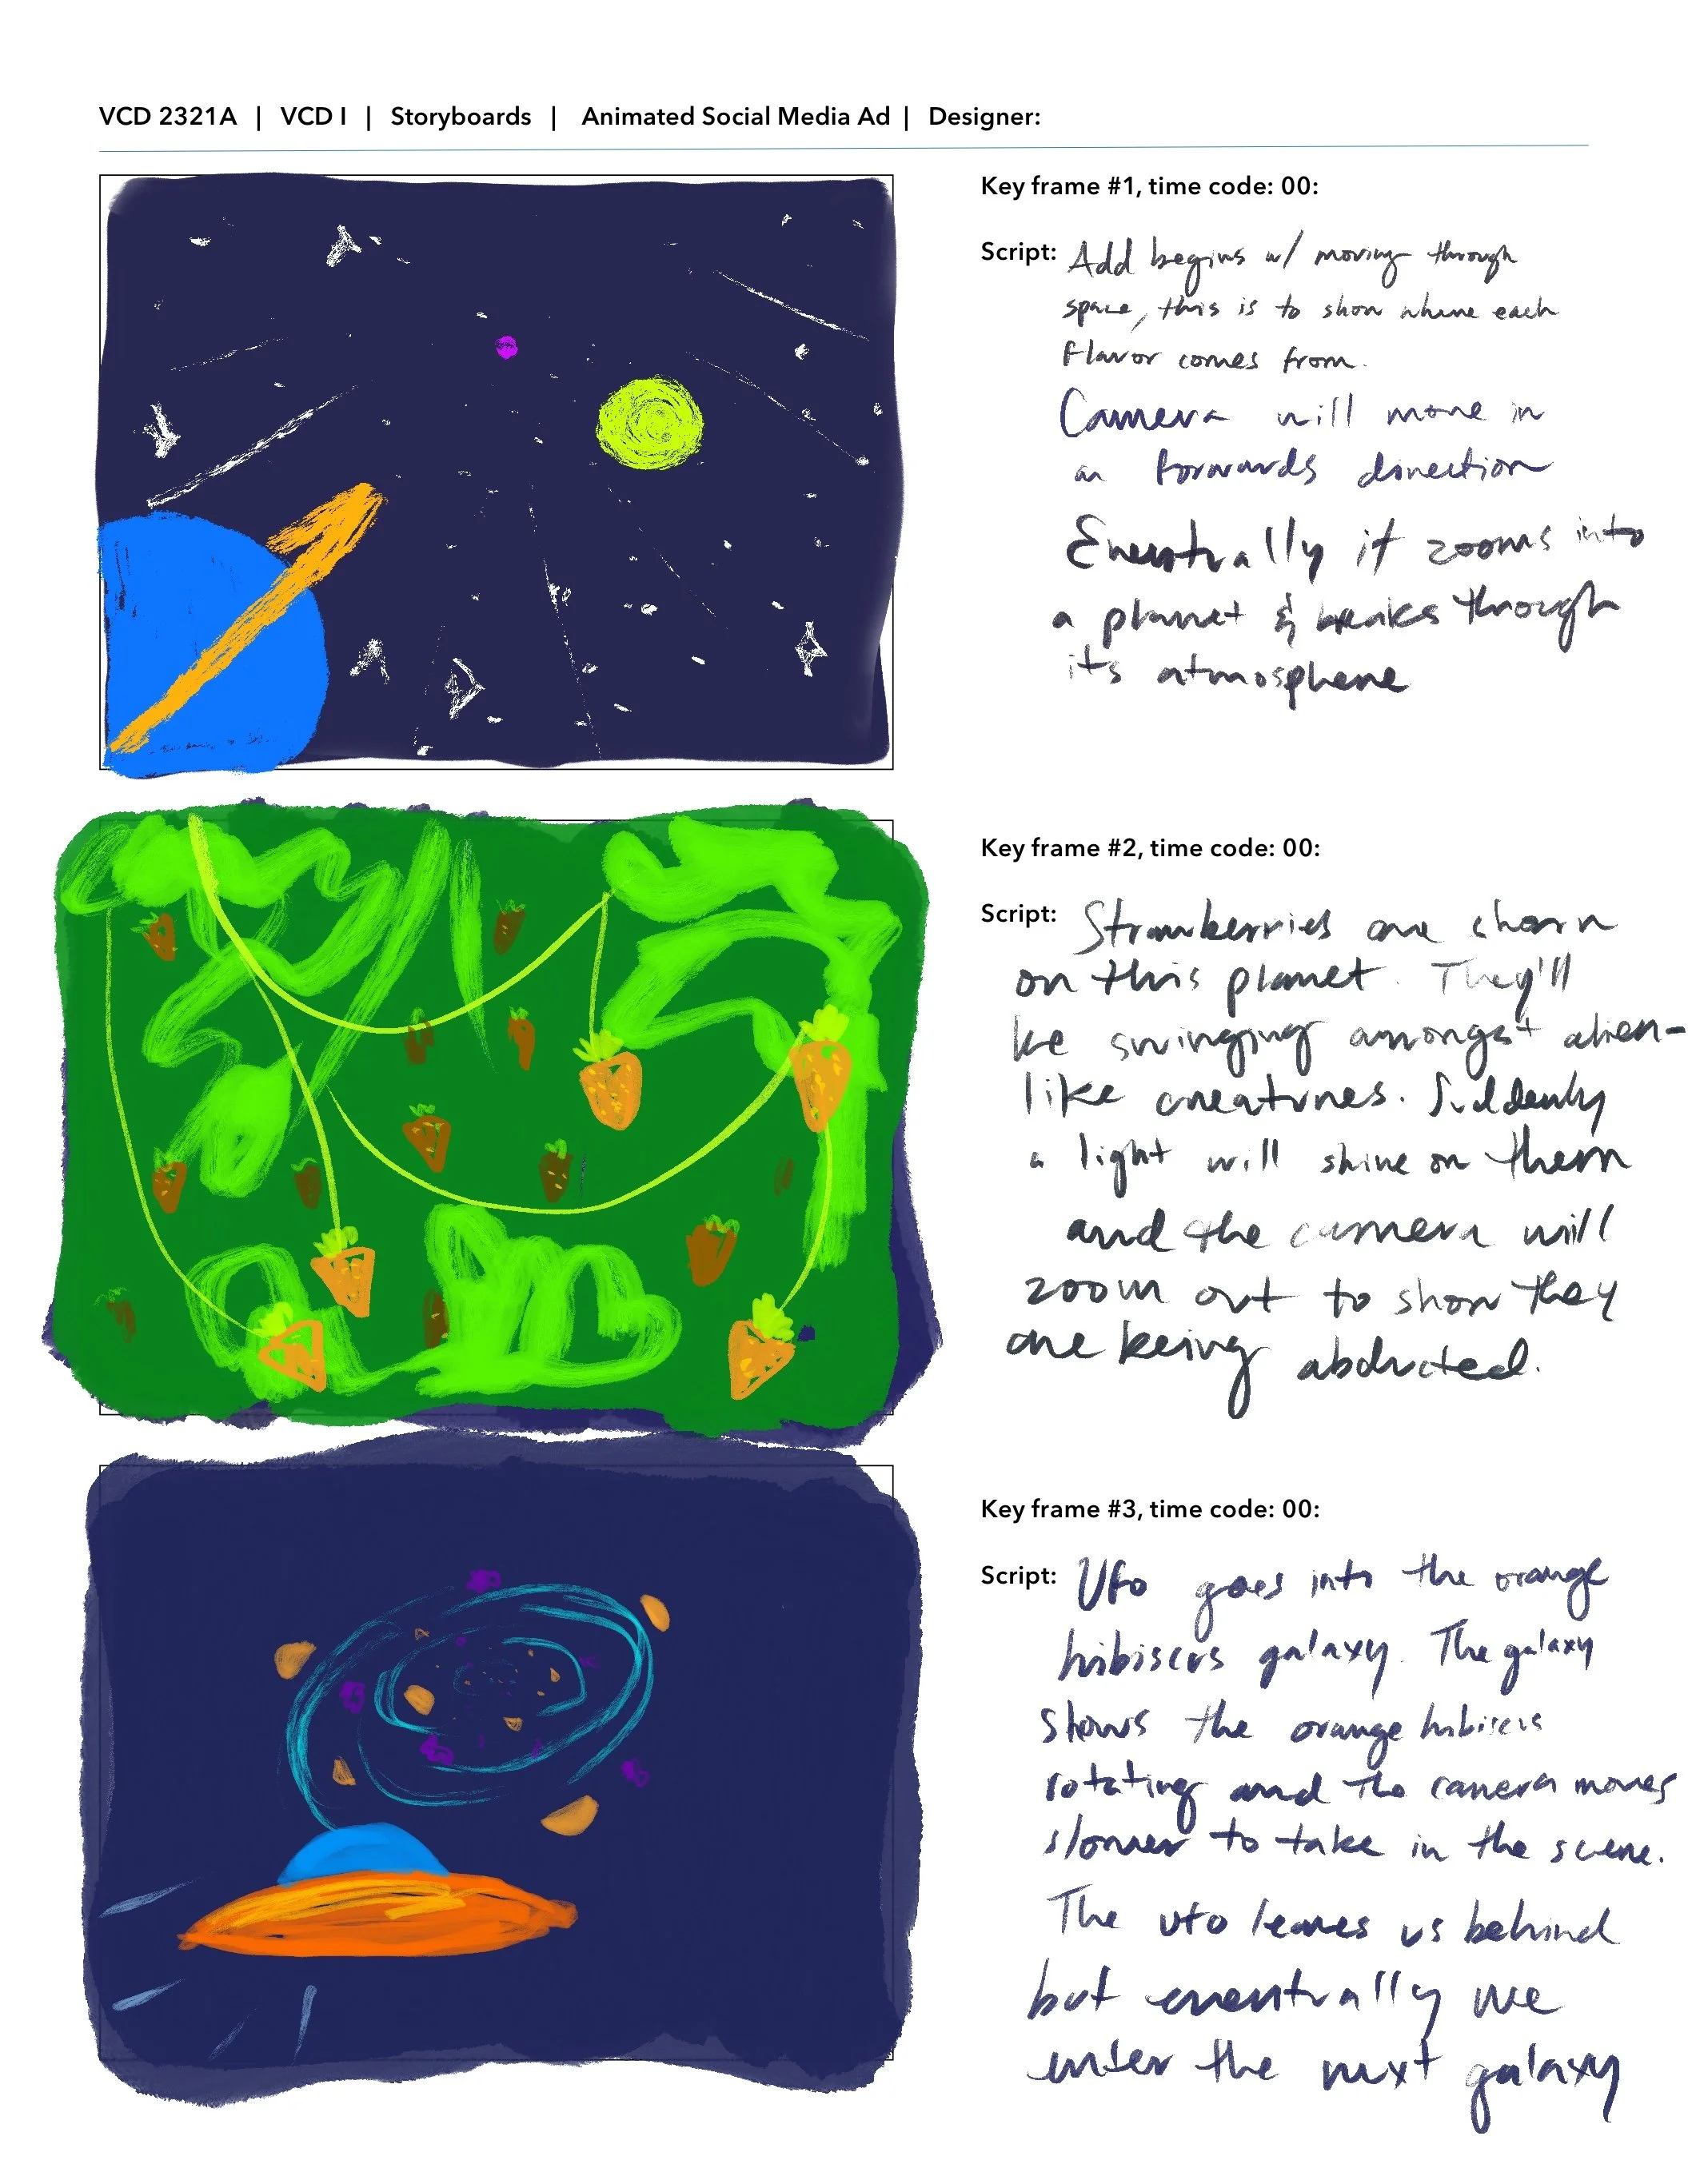 VCD 2321A | VCD I | Storyboards | Animated Social Media Ad | Designer:
Key frame #1, time code: 00:
Script: Add begins w/ moving through
space, this is to show where each
flavor comes from.
Camera will move in
a forwards direction
Eventually it zooms into
a planet & breaks through
its atmosphere
Key frame #2, time code: 00:
Script: Strawberries are shown
on this planet. They'll
be swinging amongst alien-
like creatures. Suddenly
a light will shine on them
and the camera will
zoom out to show they
are being abducted.
Key frame #3, time code: 00:
Script: Ufo goes into the orange
hibiscus galaxy. The galaxy
shows the orange hibiscus
rotating and the camera moves
slower to take in the scene.
The ufo leaves us behind
but eventually we
enter the next galaxy